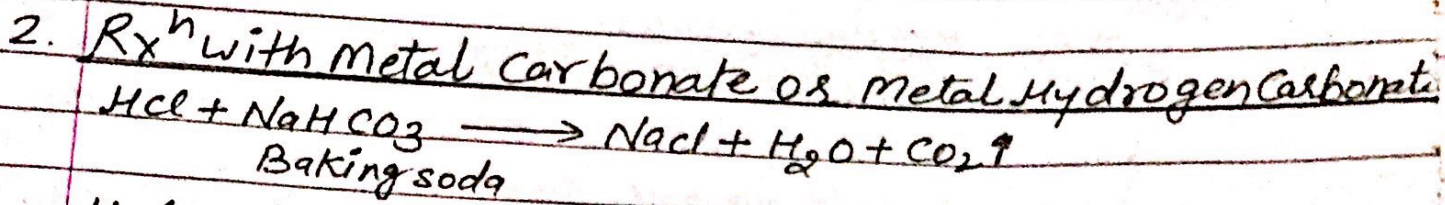 2. Rxⁿ with Metal Carbonate or Metal Hydrogen Carbonate
HCl + NaHCO₃ ⟶ NaCl + H₂O + CO₂↑
Baking soda